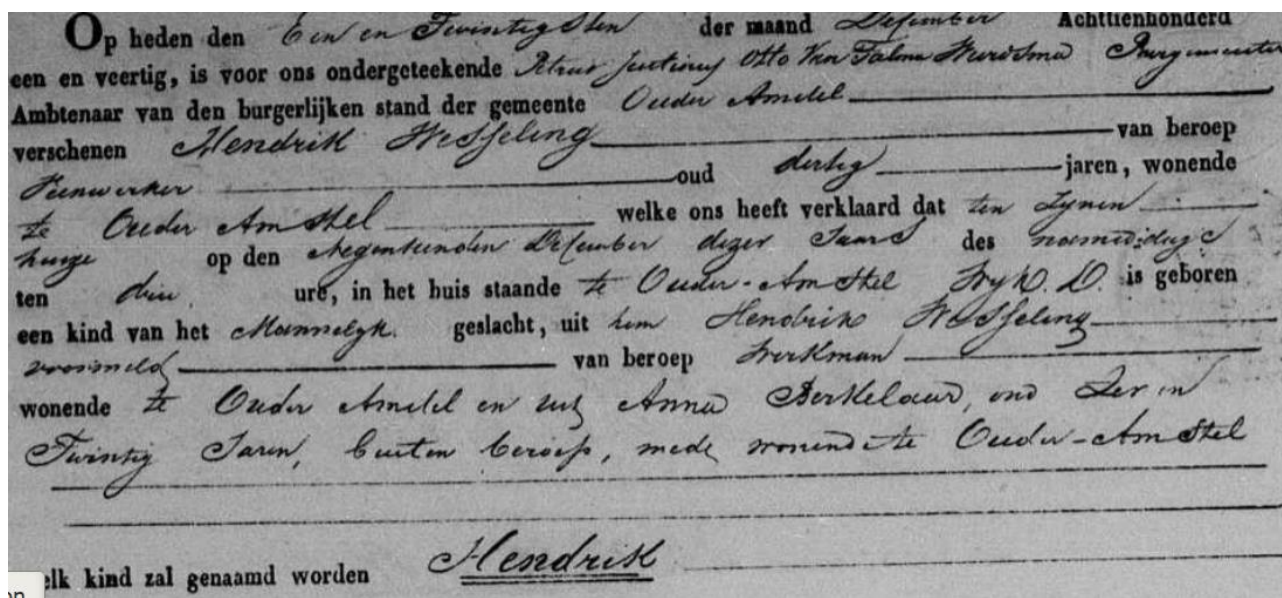 Op heden den Een en Twintigsten der maand December Achttienhonderd
een en veertig, is voor ons ondergeteekende Petrus Otto Van Burgemeester
Ambtenaar van den burgerlijken stand der gemeente Ouder Amstel
verschenen Hendrik Wesseling van beroep
Veenwerker oud dertig jaren, wonende
te Ouder Amstel welke ons heeft verklaard dat ten Zynen
huize op den Negentienden December dezer Jaars des namiddags
ten drie ure, in het huis staande te Ouder-Amstel Wyk D. is geboren
een kind van het Mannelyk geslacht, uit hem Hendrik Wesseling
voormeld van beroep Werkman
wonende te Ouder Amstel en uit Anna Berkelaar, oud Zeven
Twintig Jaren, buiten beroep, mede wonende te Ouder-Amstel
elk kind zal genaamd worden Hendrik
en